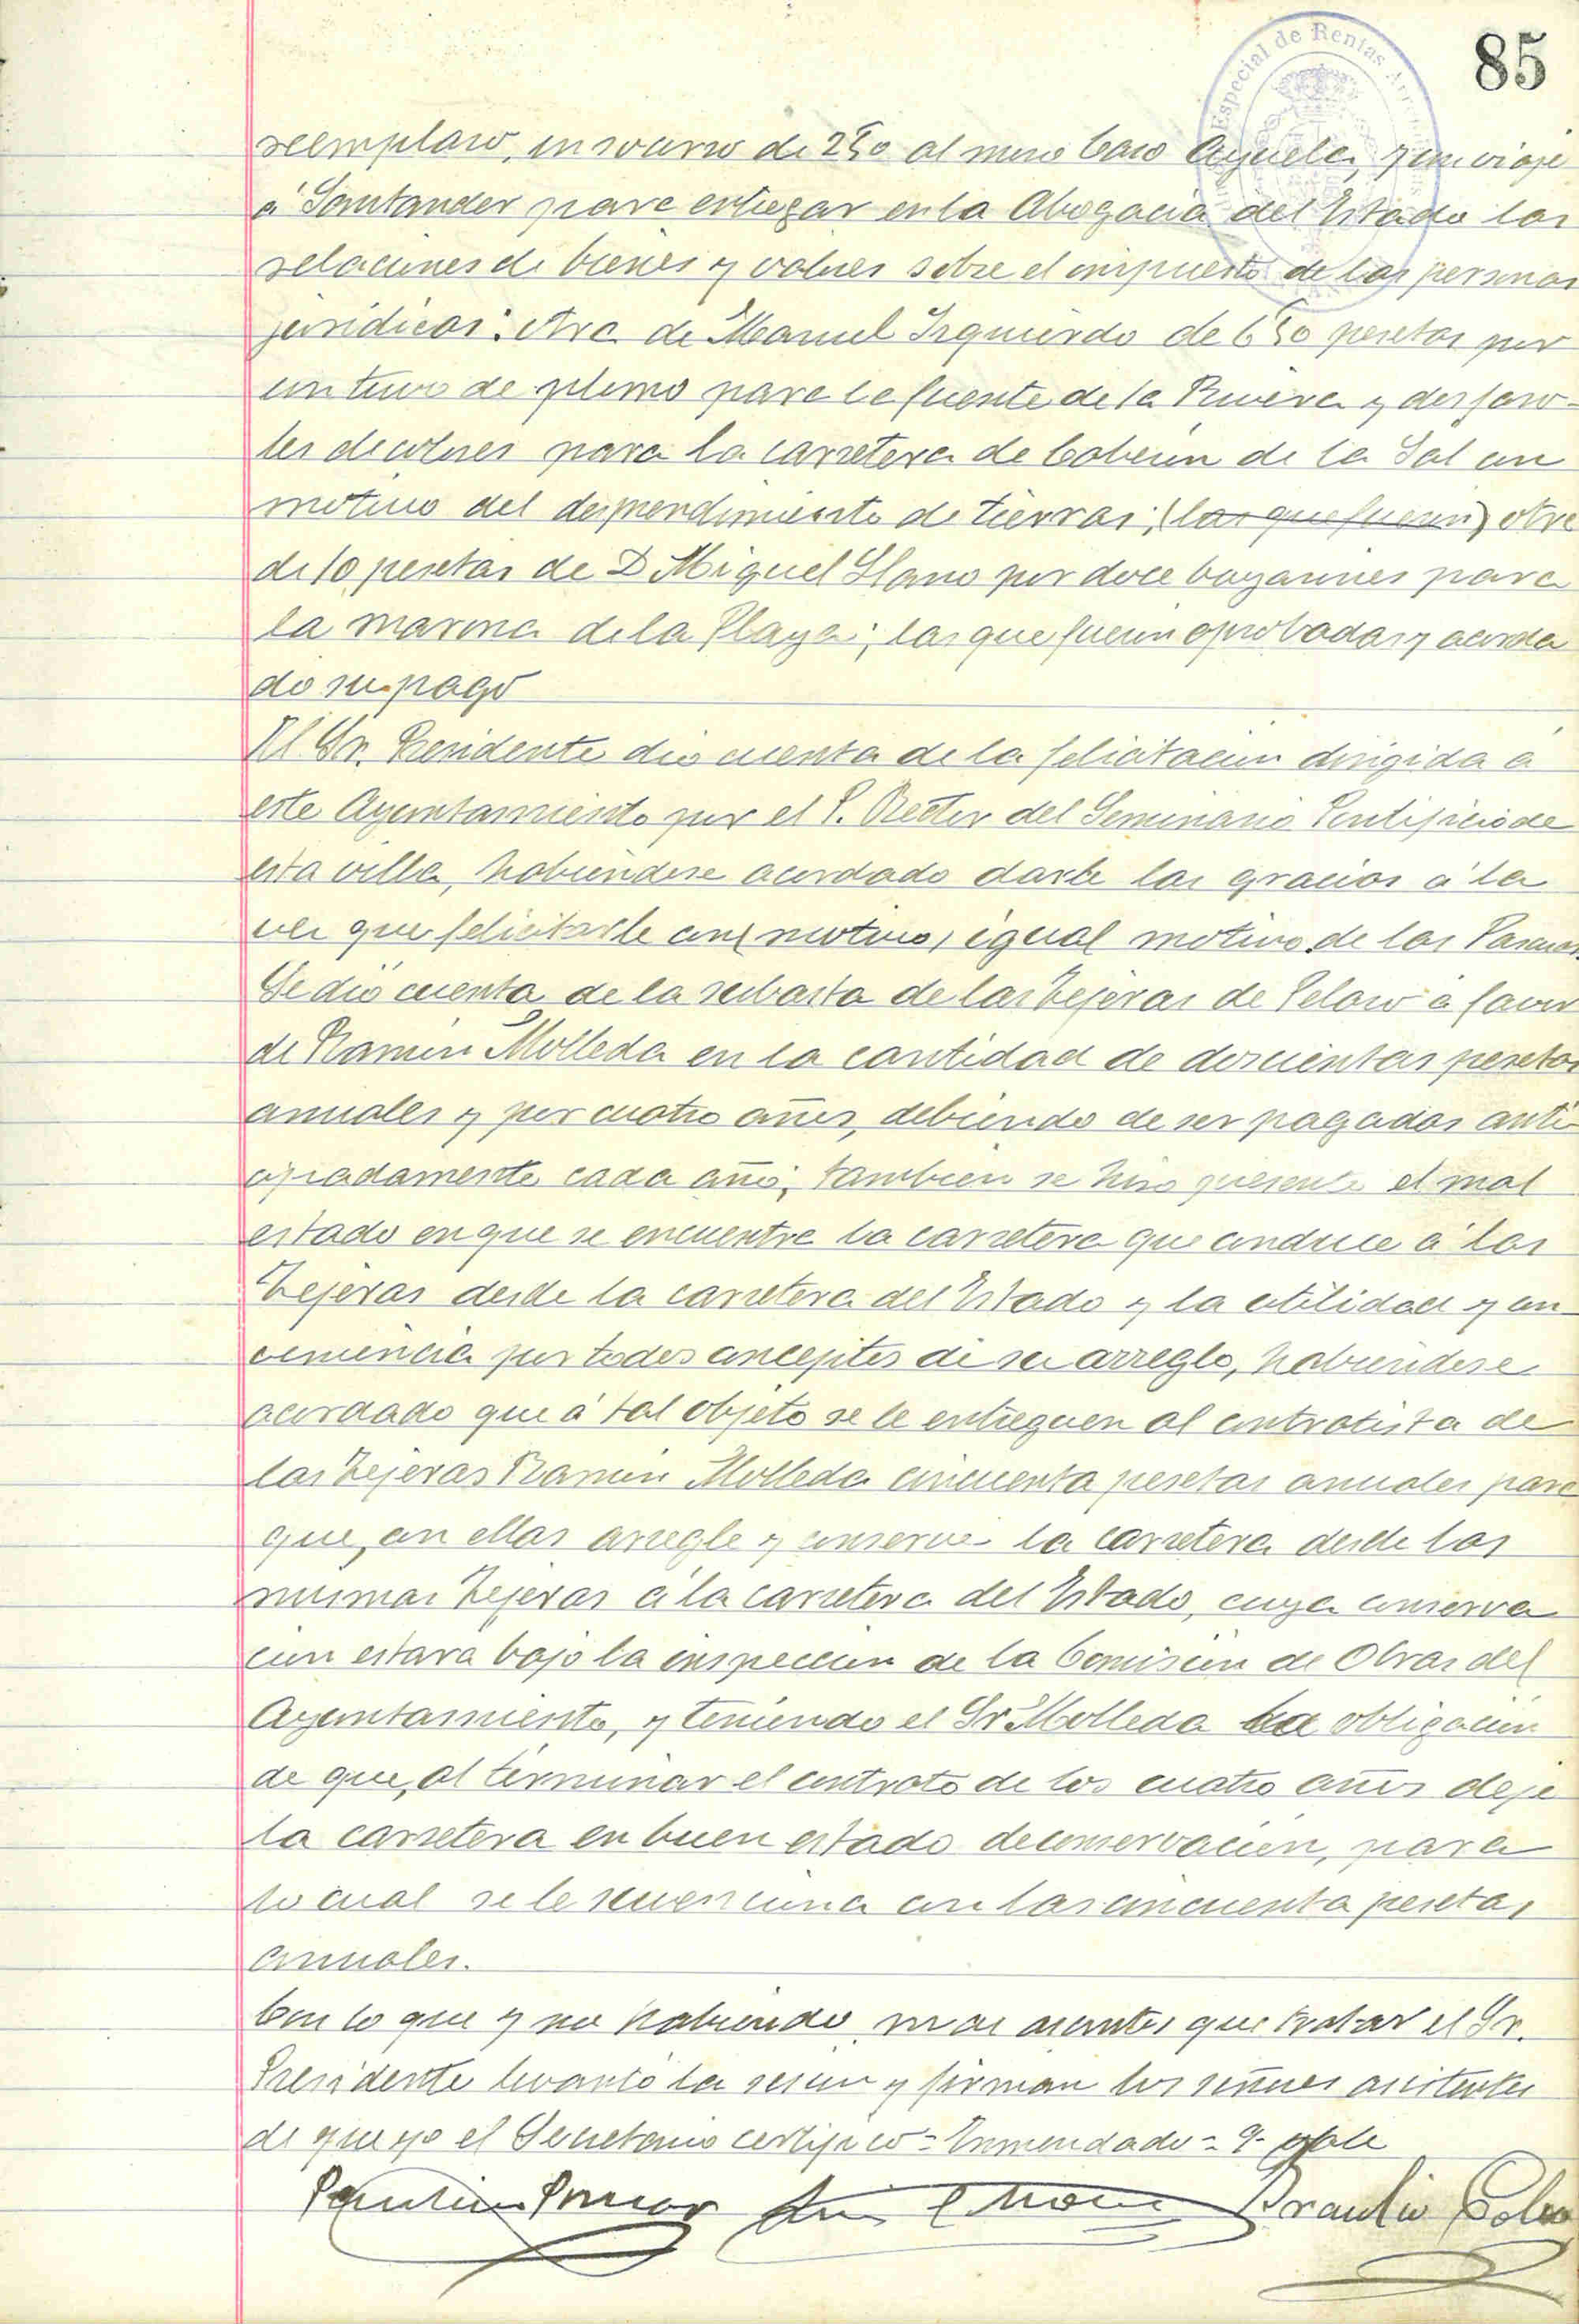 85
Especial de Rentas
reemplazo, en socorro de 2'50 al mozo Caso Ayuela, y un viaje
á Santander para entregar en la Abogacía del Estado las
relaciones de bienes y valores sobre el impuesto de las personas
jurídicas: otra de Manuel Izquierdo de 6'50 pesetas por
un tuvo de plomo para la fuente de la y dos faro-
les de colores para la carretera de Coberin de la Sal con
motivo del desprendimiento de tierras; (las que fueron) otra
de 10 pesetas de D Miguel Llano por doce para
la marina de la Playa; las que fueron aprobadas y acorda
do su pago
El Sr. Presidente dio cuenta de la felicitación dirigida á
este Ayuntamiento por el P. Rector del Seminario Pontificio de
esta villa, habiendose acordado darle las gracias á la
vez que felicitarle con (motivo) igual motivo de las Pascuas.
Se dió cuenta de la subasta de las Tejeras de Pelazo á favor
de Ramón Molleda en la cantidad de doscientas pesetas
anuales y por cuatro años, debiendo de ser pagadas anti-
cipadamente cada año; tambien se hizo presente el mal
estado en que se encuentra la carretera que conduce á las
Tejeras desde la carretera del Estado y la utilidad y con-
veniencia por todos conceptos de su arreglo, habiendose
acordado que á tal objeto se le entreguen al contratista de
las Tejeras Ramón Molleda cincuenta pesetas anuales para
que, con ellas arregle y conserve la carretera desde las
mismas Tejeras á la carretera del Estado, cuya conserva
cion estara bajo la inspeccion de la Comision de Obras del
Ayuntamiento, y teniendo el Sr Molleda la obligacion
de que, al terminar el contrato de los cuatro años deje
la carretera en buen estado de conservacion, para
lo cual se le suvenciona con las cincuenta pesetas
anuales.
Con lo que y no habiendo mas asuntos que tratar el Sr.
Presidente levantó la sesion y firman los señores asistentes
de que yo el Secretario certifico = Enmendado = 9 - vale
Braulio